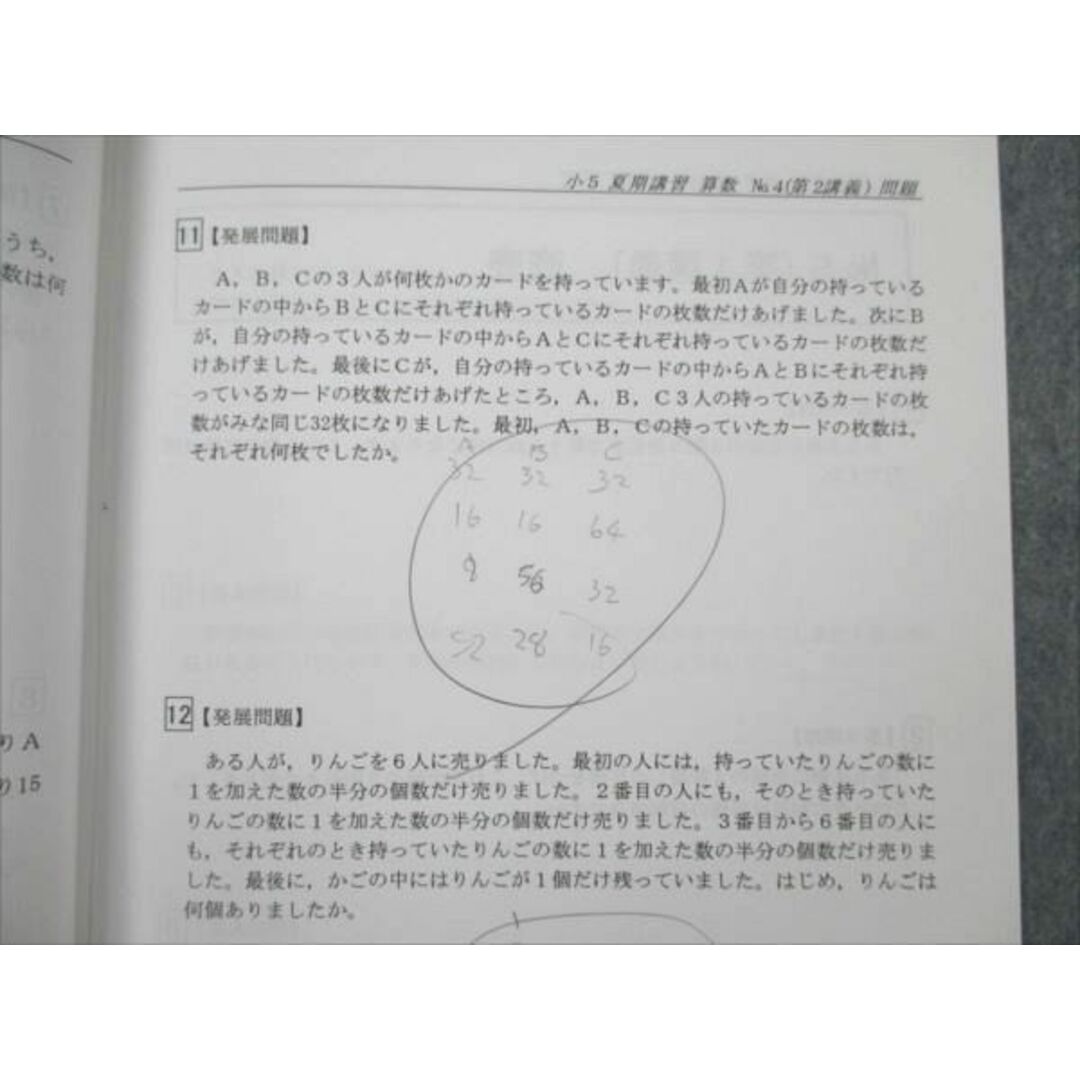 小5 夏期講習 算数 №4(第2講義) 問題
うち,
数は何
11【発展問題】
A, B, Cの3人が何枚かのカードを持っています。最初Aが自分の持っている
カードの中からBとCにそれぞれ持っているカードの枚数だけあげました。次にB
が, 自分の持っているカードの中からAとCにそれぞれ持っているカードの枚数だ
けあげました。最後にCが, 自分の持っているカードの中からAとBにそれぞれ持
っているカードの枚数だけあげたところ, A, B, C3人の持っているカードの枚
数がみな同じ32枚になりました。最初, A, B, Cの持っていたカードの枚数は,
それぞれ何枚でしたか。
A B C
32 32 32
16 16 64
8 56 32
52 28 16
12【発展問題】
りA
り15
ある人が, りんごを6人に売りました。最初の人には, 持っていたりんごの数に
1を加えた数の半分の個数だけ売りました。2番目の人にも, そのとき持っていた
りんごの数に1を加えた数の半分の個数だけ売りました。3番目から6番目の人に
も, それぞれのとき持っていたりんごの数に1を加えた数の半分の個数だけ売りま
した。最後に, かごの中にはりんごが1個だけ残っていました。はじめ, りんごは
何個ありましたか。